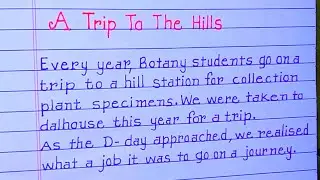 A Trip To The Hills
Every year, Botany students go on a
trip to a hill station for collection
plant specimens. We were taken to
dalhouse this year for a trip.
As the D-day approached, we realised
what a job it was to go on a journey.